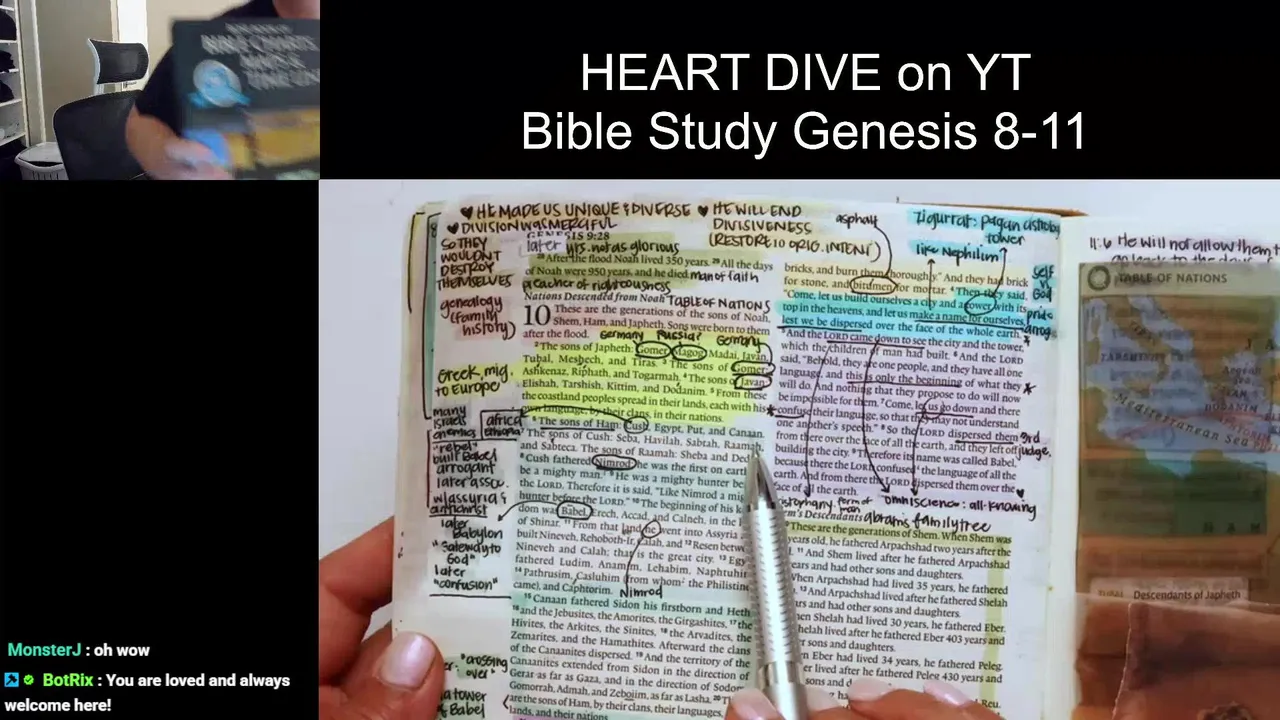 HEART DIVE on YT
Bible Study Genesis 8-11
♥ HE MADE US UNIQUE & DIVERSE ♥ HE WILL END
♥ DIVISION WAS MERCIFUL
DIVISIVENESS
(RESTORE TO ORIG. INTENT)
SO THEY
WOULDN'T
DESTROY
THEMSELVES
genealogy
(family
history)
Greek, mig.
to Europe
many
israels
enemies
"rebel"
built Babel
arrogant
later asso.
w/assyria &
antichrist
later
Babylon
"Gateway to
God"
later
"confusion"
africa
ethiopia
"crossing
over"
a tower
of Babel
GENESIS 9:28
later yrs. not as glorious
28 After the flood Noah lived 350 years. 29 All the days
of Noah were 950 years, and he died. man of faith
preacher of righteousness
Nations Descended from Noah TABLE OF NATIONS
10 These are the generations of the sons of Noah,
Shem, Ham, and Japheth. Sons were born to them
after the flood.
Germany Russia? Germany
2 The sons of Japheth: Gomer, Magog, Madai, Javan,
Tubal, Meshech, and Tiras. 3 The sons of Gomer:
Ashkenaz, Riphath, and Togarmah. 4 The sons of Javan:
Elishah, Tarshish, Kittim, and Dodanim. 5 From these
the coastland peoples spread in their lands, each with his
own language, by their clans, in their nations.
6 The sons of Ham: Cush, Egypt, Put, and Canaan.
7 The sons of Cush: Seba, Havilah, Sabtah, Raamah,
and Sabteca. The sons of Raamah: Sheba and Ded
8 Cush fathered Nimrod; he was the first on earth
be a mighty man. 9 He was a mighty hunter be
the LORD. Therefore it is said, "Like Nimrod a mig
hunter before the LORD." 10 The beginning of his k
dom was Babel, Erech, Accad, and Calneh, in the
of Shinar. 11 From that land he went into Assyria
built Nineveh, Rehoboth-Ir, Calah, and 12 Resen betw
Nineveh and Calah; that is the great city. 13 Egy
fathered Ludim, Anamim, Lehabim, Naphtuhi
14 Pathrusim, Casluhim (from whom the Philistin
came), and Caphtorim. Nimrod
15 Canaan fathered Sidon his firstborn and Heth
16 and the Jebusites, the Amorites, the Girgashites, 17 the
Hivites, the Arkites, the Sinites, 18 the Arvadites, the
Zemarites, and the Hamathites. Afterward the clans
of the Canaanites dispersed. 19 And the territory of the
Canaanites extended from Sidon in the direction of
Gerar as far as Gaza, and in the direction of Sodom
Gomorrah, Admah, and Zeboiim, as far as Lasha. 20 Th
are the sons of Ham, by their clans, their languages,
lands, and their nations
asphalt
Zigurrat: pagan astrology
tower
like Nephilim
self
vs.
God
pride
arrog.
bricks, and burn them thoroughly." And they had brick
for stone, and bitumen for mortar. 4 Then they said,
"Come, let us build ourselves a city and a tower with its
top in the heavens, and let us make a name for ourselves,
lest we be dispersed over the face of the whole earth."
5 And the LORD came down to see the city and the tower,
which the children of man had built. 6 And the LORD
said, "Behold, they are one people, and they have all one
language, and this is only the beginning of what they
will do. And nothing that they propose to do will now
be impossible for them. 7 Come, let us go down and there
confuse their language, so that they may not understand
one another's speech." 8 So the LORD dispersed them
from there over the face of all the earth, and they left off
building the city. 9 Therefore its name was called Babel,
because there the LORD confused the language of all the
earth. And from there the LORD dispersed them over the
face of all the earth.
3rd
judge.
form of
man
omniscience: all-knowing
m's Descendants abrams family tree
These are the generations of Shem. When Shem was
years old, he fathered Arpachshad two years after the
11 And Shem lived after he fathered Arpachshad
ears and had other sons and daughters.
When Arpachshad had lived 35 years, he fathered
13 And Arpachshad lived after he fathered Shelah
ars and had other sons and daughters.
hen Shelah had lived 30 years, he fathered Eber.
helah lived after he fathered Eber 403 years and
r sons and daughters.
en Eber had lived 34 years, he fathered Peleg.
er lived after he fathered Peleg 430 years and
sons and d
Reu.
11:6 He will not allow them t
TABLE OF NATIONS
Mediterranean Sea
H A M
Descendants of Japheth
MonsterJ : oh wow
BotRix : You are loved and always
welcome here!